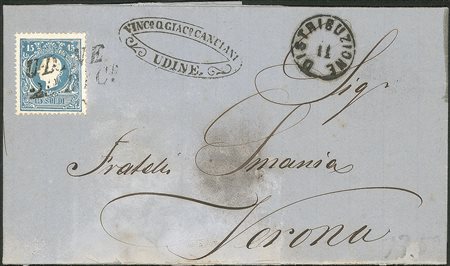 15 15
15 SOLDI
UDINE
VINC.º Q. GIAC.º CANCIANI
UDINE.
DISTRIBUZIONE
11
Sig.ri
Fratelli Smania
Verona